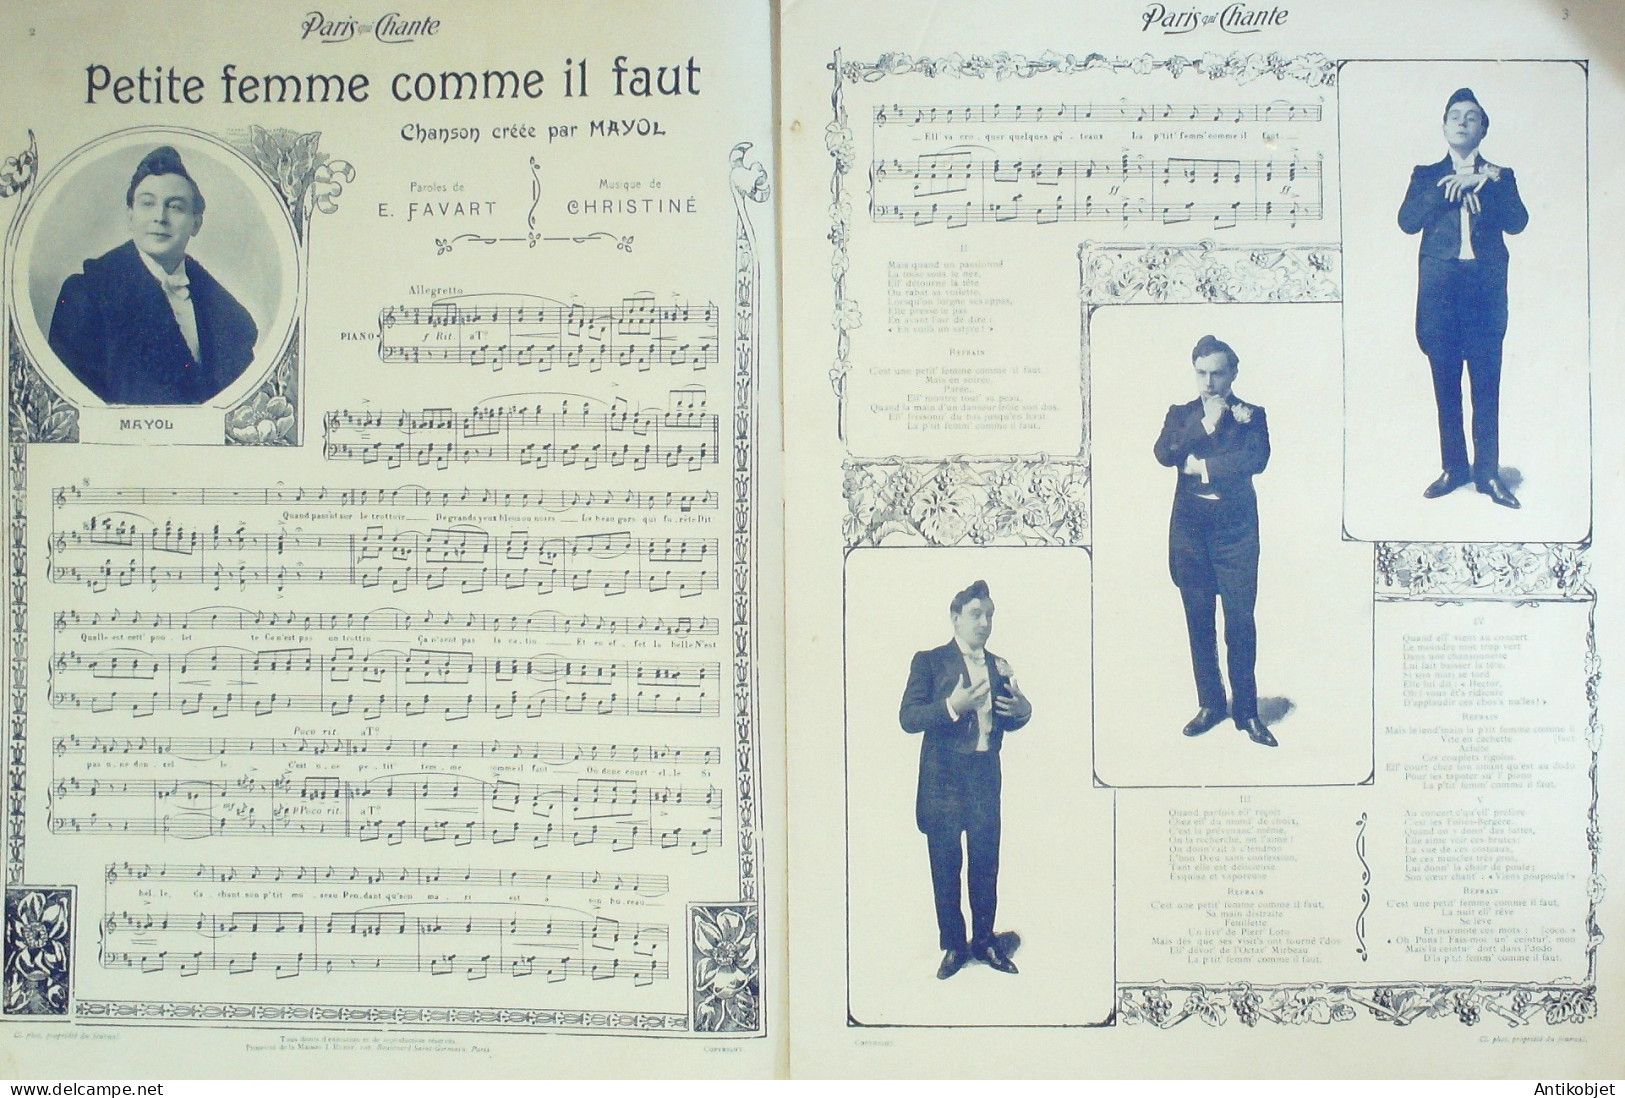 2
Paris qui Chante
Petite femme comme il faut
Chanson créée par MAYOL
Paroles de
E. FAVART
Musique de
CHRISTINÉ
MAYOL
Allegretto
PIANO
f Rit. a Tº
Quand pass'nt sur le trottoir De grands yeux bleus ou noirs Le beau gars qui fu_rète Dit
Quelle est cett' pou_let te Ce n'est pas un trottin Ça n'sent pas la ca_tin Et en ef_fet la belle N'est
Poco rit. a Tº
pas u_ne don_zel le C'est u_ne pe_tit' fem_me comme il faut Où donc court_el_le Si
mf Poco rit. a Tº
bel_le, Ca_chant son p'tit mu_seau Pen_dant qu'son ma_ri est à son bureau
Cl. phot. propriété du journal.
Tous droits d'exécution et de reproduction réservés.
Boulevard Saint-Germain, Paris.
COPYRIGHT.
Paris qui Chante
3
Ell' va cro_quer quelques gâ_teaux La p'tit' femm' comme il faut
ff
II
Mais quand un passionné
La toise sous le nez,
Ell' détourne la tête
Ou rabat sa voilette.
Lorsqu'on lorgne ses appas,
Elle presse le pas
En ayant l'air de dire :
« En voilà un satyre! »
REFRAIN
C'est une petit' femme comme il faut
Mais en soirée,
Parée,
Ell' montre tout' sa peau,
Quand la main d'un danseur frôle son dos,
Ell' frissonn' du bas jusqu'en haut
La p'tit' femm' comme il faut.
III
Quand parfois ell' reçoit
Chez ell' du mond' de choix,
C'est la prévenanc' même,
On la recherche, on l'aime!
On donn'rait à c'tendron
L'bon Dieu sans confession,
Tant elle est délicieuse
Exquise et vaporeuse
REFRAIN
C'est une petit' femme comme il faut,
Sa main distraite
Feuillette
Un livr' de Pierr' Loto
Mais dès que ses visit's ont tourné l'dos
Ell' dévor' de l'Octav' Mirbeau
La p'tit' femm' comme il faut.
IV
Quand ell' vient au concert
Le moindre mot trop vert
Dans une chansonnette
Lui fait baisser la tête.
Si son mari se tord
Elle lui dit : « Hector,
Oh! vous êt's ridicule
D'applaudir ces chos's nulles! »
REFRAIN
Mais le lend'main la p'tit' femme comme il
Vite en cachette [faut
Achète
Ces couplets rigolos.
Ell' court chez son amant qu'est au dodo
Pour les tapoter su' l' piano
La p'tit' femm' comme il faut.
V
Au concert c'qu'ell' préfère
C'est les Folies-Bergère.
Quand on y donn' des luttes,
Elle aime voir ces brutes!
La vue de ces costauds,
De ces muscles très gros,
Lui donn' la chair de poule;
Son cœur chant' : « Viens poupoule! »
REFRAIN
C'est une petit' femme comme il faut,
La nuit ell' rêve
Se lève
Et marmote ces mots : [coco. »
« Oh Pons! Fais-moi un' ceintur', mon
Mais la ceintur' dort dans l'dodo
D'la p'tit' femm' comme il faut.
COPYRIGHT.
Cl. phot. propriété du journal.
Antikobjet